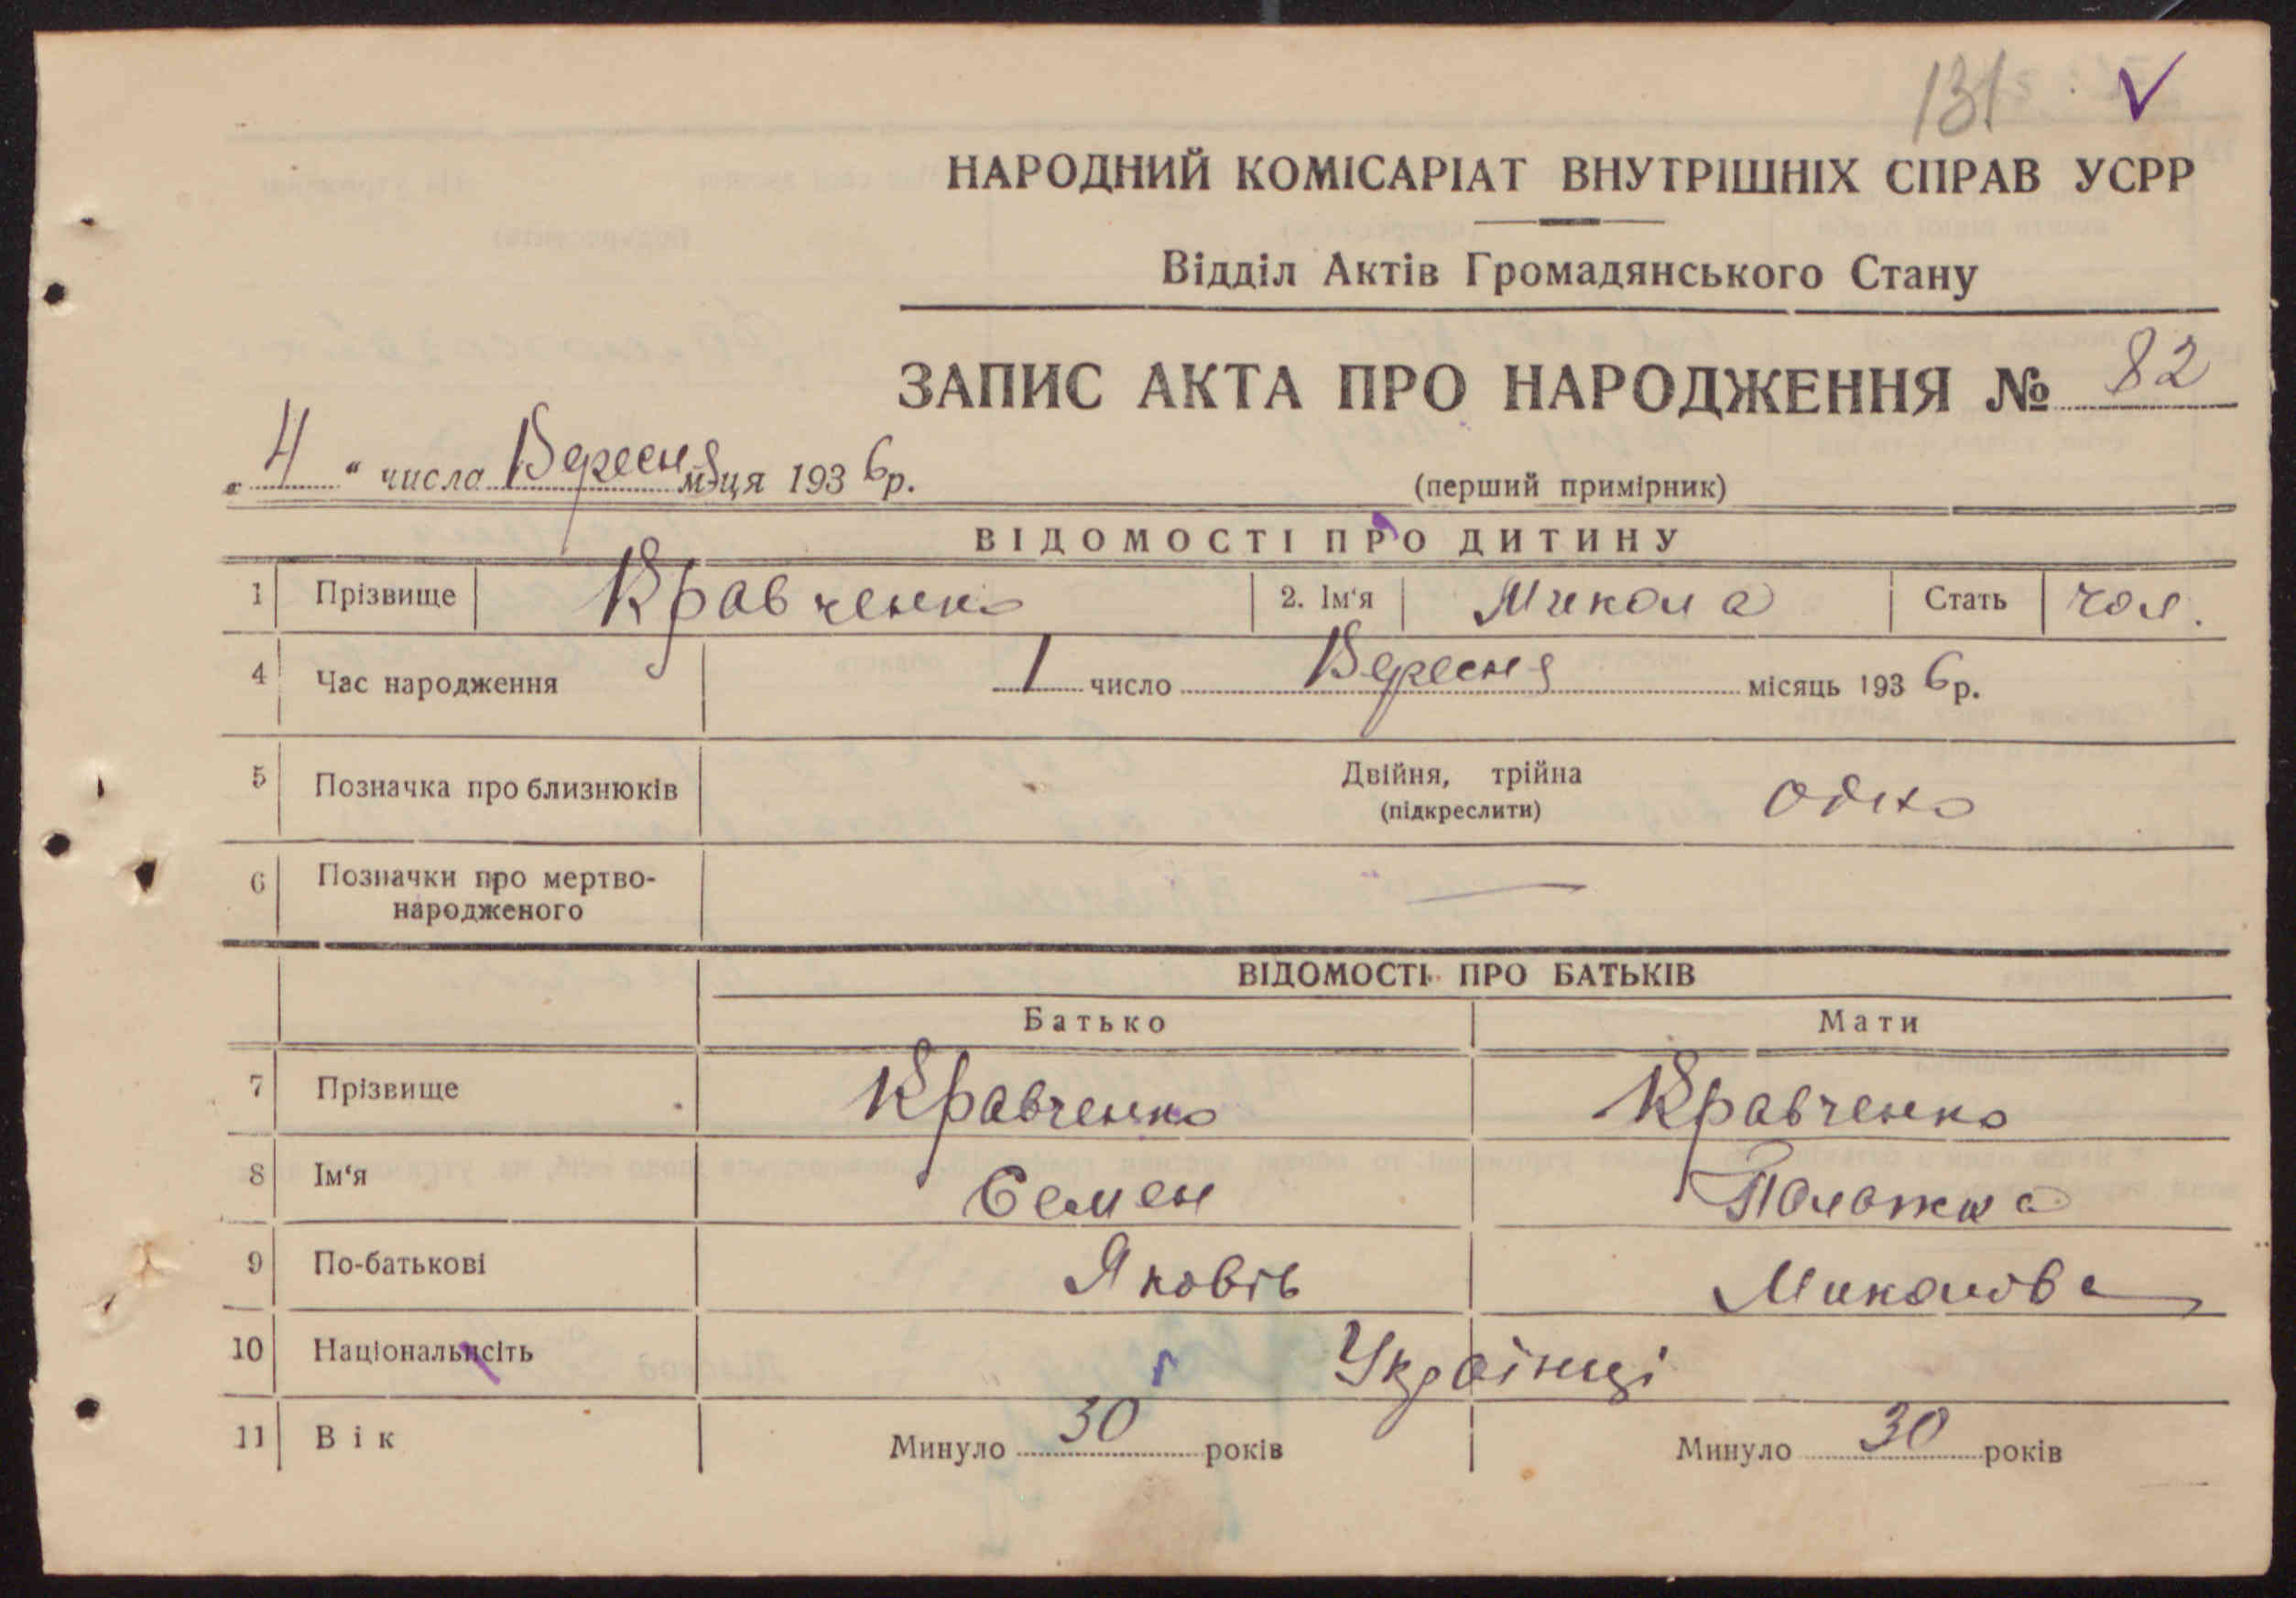 131 V
НАРОДНИЙ КОМІСАРІАТ ВНУТРІШНІХ СПРАВ УСРР
Відділ Актів Громадянського Стану
ЗАПИС АКТА ПРО НАРОДЖЕННЯ № 82
„ 4 “ числа Вересня м-ця 1936 р.
(перший примірник)
ВІДОМОСТІ ПРО ДИТИНУ
1 Прізвище Кравченко 2. Ім‘я Микола Стать чол.
4 Час народження 1 число Вересня місяць 1936 р.
5 Позначка про близнюків Двійня, трійна одно
(підкреслити)
6 Позначки про мертво-
народженого —
ВІДОМОСТІ ПРО БАТЬКІВ
Батько Мати
7 Прізвище Кравченко Кравченко
8 Ім‘я Семен Палажка
9 По-батькові Яковів Миколова
10 Національнсіть Українці
11 Вік Минуло 30 років Минуло 30 років